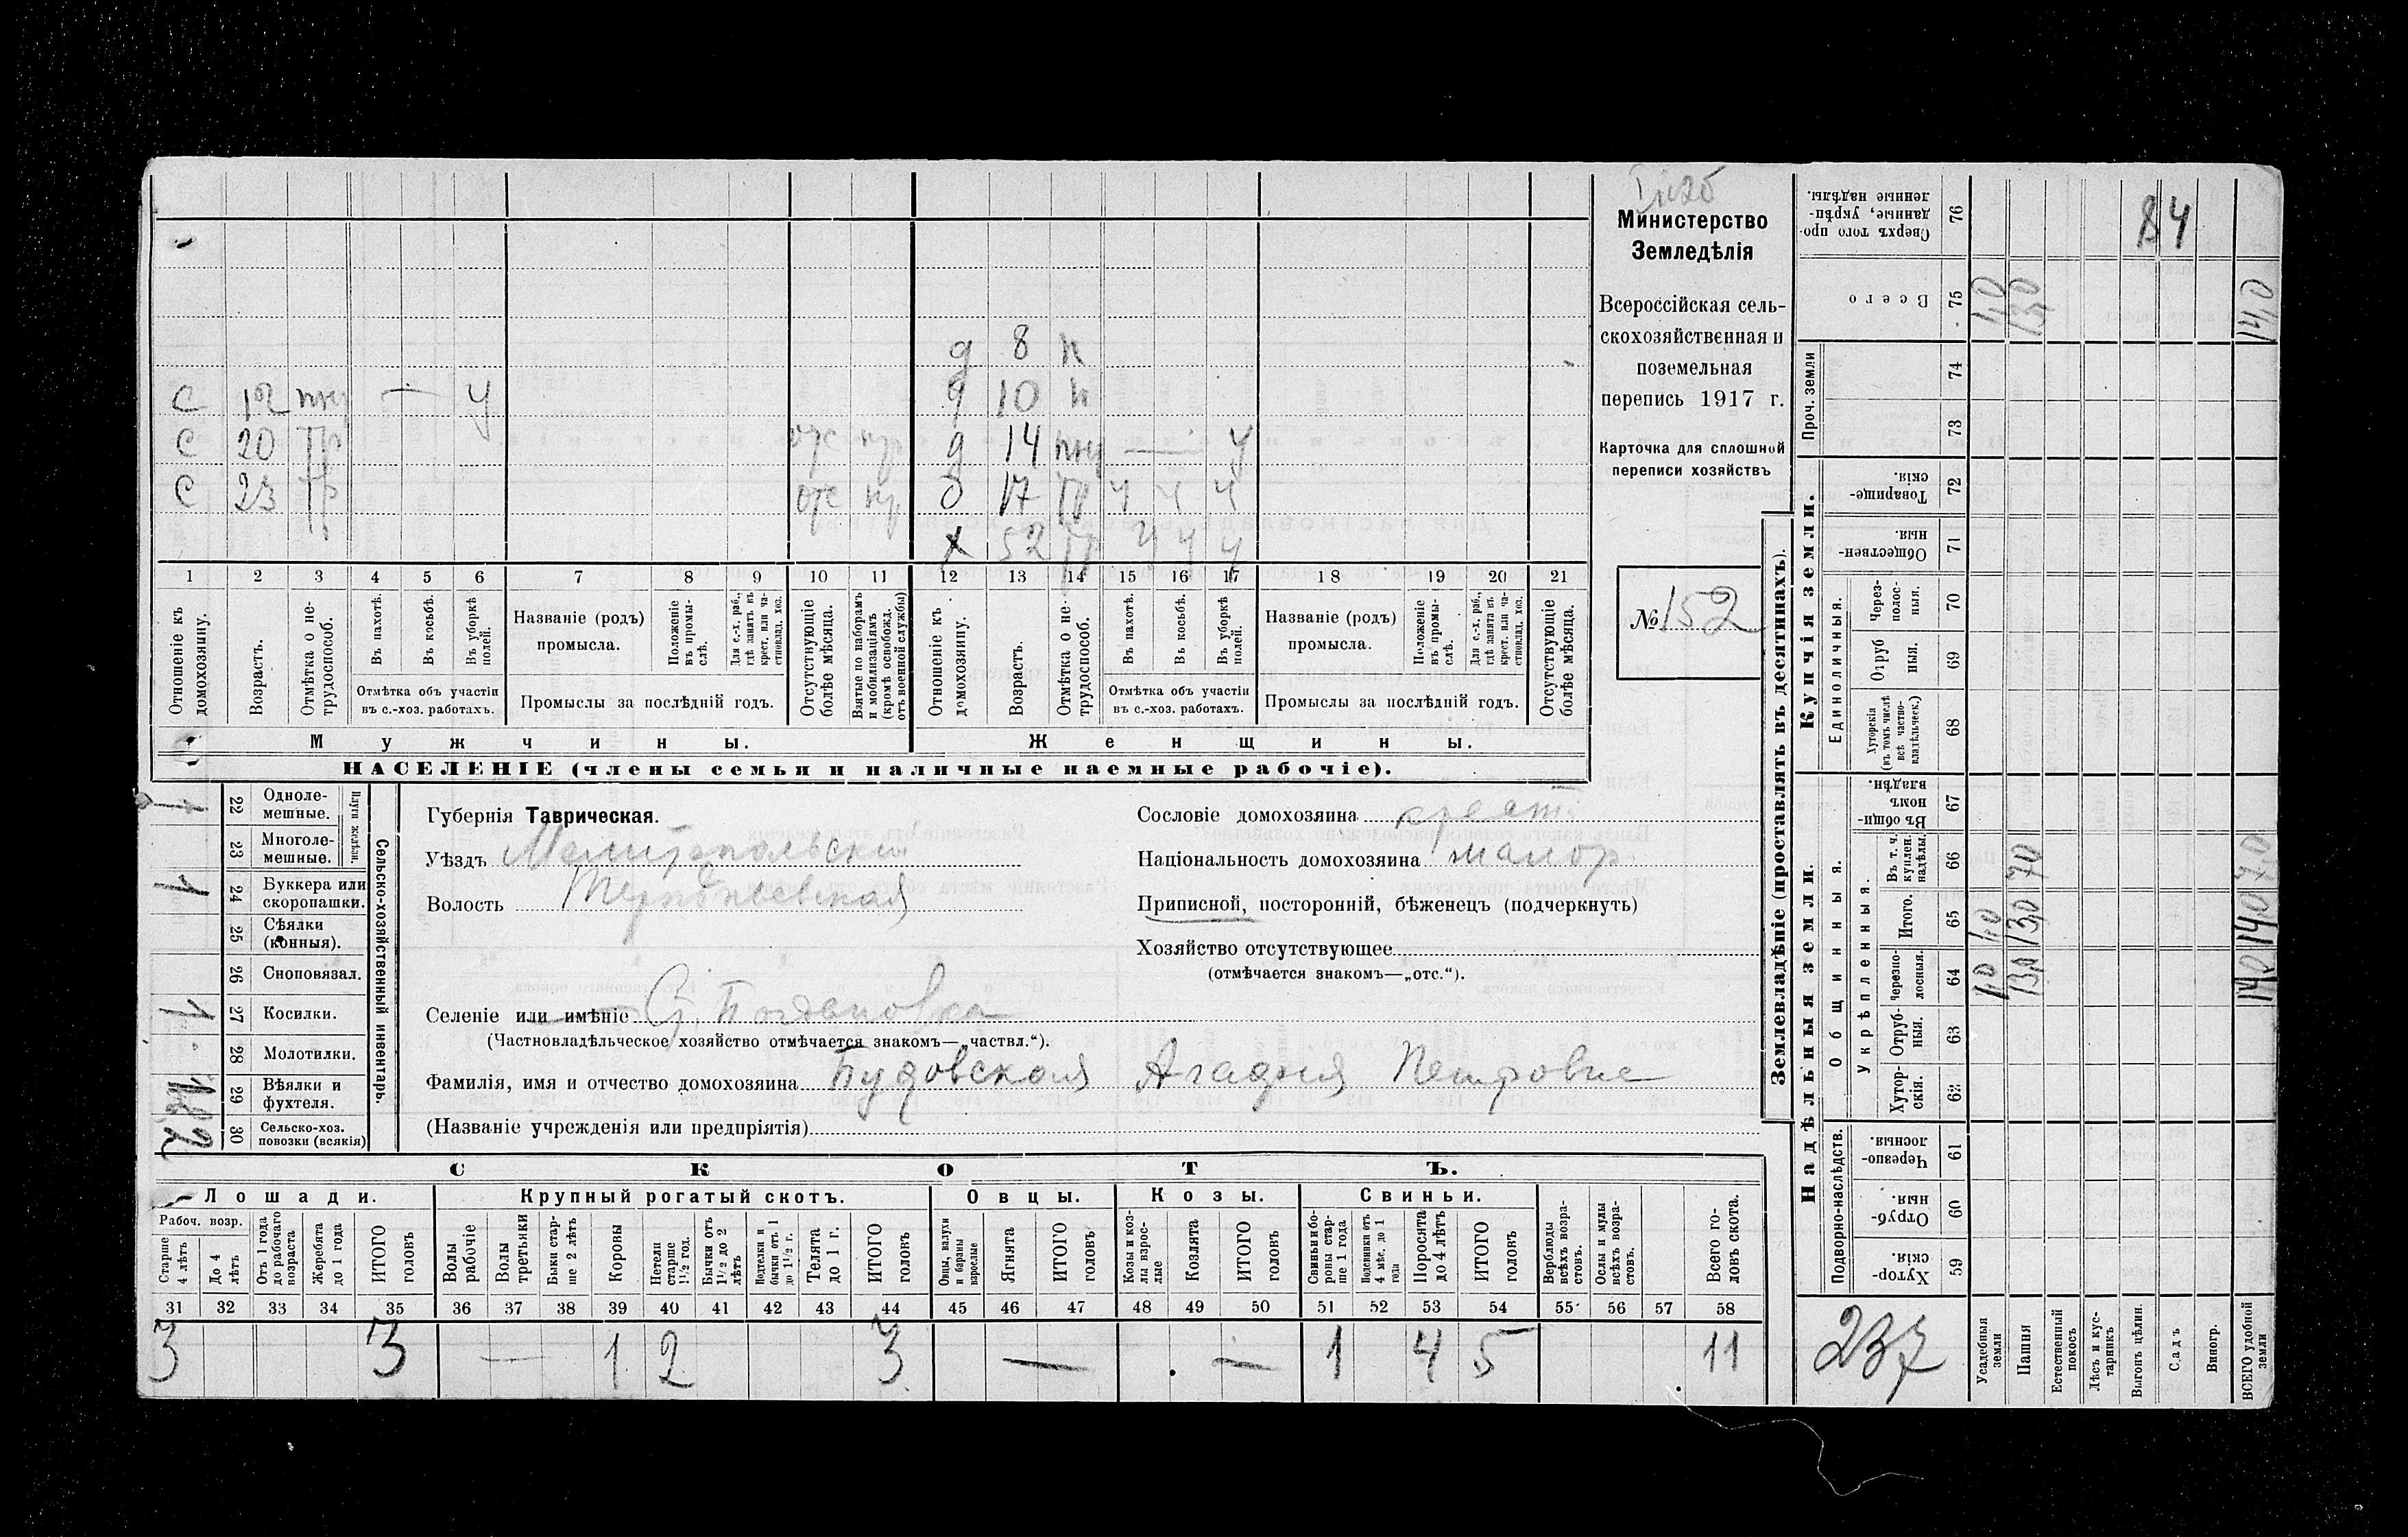 Министерство
Земледѣлія
Всероссійская сель-
скохозяйственная и
поземельная
перепись 1917 г.
Карточка для сплошной
переписи хозяйствъ
№ 152
д 8 н
С 12 — У д 10 н
С 20 пр отс д 14 — У
С 23 пр отс д 17 пр У У У
х 52 пр У У У
1 2 3 4 5 6 7 8 9 10 11 12 13 14 15 16 17 18 19 20 21
Отношеніе къ домохозяину.
Возрастъ.
Отмѣтка о не-трудоспособ.
Въ пахотѣ.
Въ косьбѣ.
Въ уборкѣ полей.
Отмѣтка объ участіи въ с.-хоз. работахъ.
Названіе (родъ) промысла.
Положеніе въ промы-слѣ.
Для с.-х. раб., гдѣ занятъ въ крест. или ча-стновлад. хоз.
Промыслы за послѣдній годъ.
Отсутствующіе болѣе мѣсяца.
Взятые по наборамъ и мобилизаціямъ (кромѣ освобожд. отъ военной службы)
Отношеніе къ домохозяину.
Возрастъ.
Отмѣтка о не-трудоспособ.
Въ пахотѣ.
Въ косьбѣ.
Въ уборкѣ полей.
Отмѣтка объ участіи въ с.-хоз. работахъ.
Названіе (родъ) промысла.
Положеніе въ промы-слѣ.
Для с.-х. раб., гдѣ занята въ крест. или ча-стновлад. хоз.
Промыслы за послѣдній годъ.
Отсутствующіе болѣе мѣсяца.
Мужчины. Женщины.
НАСЕЛЕНІЕ (члены семьи и наличные наемные рабочіе).
Сельско-хозяйственный инвентарь.
Плуги желѣзн.
22 Одноле-мешные. 1
23 Многоле-мешные.
24 Буккера или скоропашки. 1
25 Сѣялки (конныя).
26 Сноповязал.
27 Косилки. 1
28 Молотилки.
29 Вѣялки и фухтеля. 1
30 Сельско-хоз. повозки (всякія) 2
Губернія Таврическая.
Уѣздъ Мелитопольскій
Волость Терпѣньевская
Сословіе домохозяина крест.
Національность домохозяина малор.
Приписной, посторонній, бѣженецъ (подчеркнуть)
Хозяйство отсутствующее
(отмѣчается знакомъ—„отс.“).
Селеніе или имѣніе С. Богдановка
(Частновладѣльческое хозяйство отмѣчается знакомъ—„частвл.“).
Фамилія, имя и отчество домохозяина Петровна
(Названіе учрежденія или предпріятія)
СКОТЪ.
Лошади. Крупный рогатый скотъ. Овцы. Козы. Свиньи.
Рабоч. возр.
Старше 4 лѣтъ
До 4 лѣтъ
Отъ 1 года до рабочаго возраста
Жеребята до 1 года
ИТОГО головъ
Волы рабочіе
Волы третьяки
Быки стар-ше 2 лѣтъ
Коровы
Нетели старше 1½ год.
Бычки отъ 1½ до 2 лѣтъ
Подтелки и бычки отъ 1 до 1½ г.
Телята до 1 г.
ИТОГО головъ
Овцы, валухи и бараны взрослые
Ягнята
ИТОГО головъ
Козы и коз-лы взрос-лые
Козлята
ИТОГО головъ
Свиньи и бо-ровы стар-ше 1 года
Подсвинки отъ 4 мѣс. до 1 года
Поросята до 4 лѣтъ
ИТОГО головъ
Верблюды всѣхъ возра-стовъ.
Ослы и мулы всѣхъ возра-стовъ.
Всего го-ловъ скота.
31 32 33 34 35 36 37 38 39 40 41 42 43 44 45 46 47 48 49 50 51 52 53 54 55 56 57 58
3 3 — 1 2 3 — — 1 4 5 11
Землевладѣніе (проставлять въ десятинахъ).
Надѣльныя земли. Купчія земли.
Сверхъ того про-данные, укрѣп-ленные надѣлы. 76 84
Всего 75 1,0 13,0 14,0
Проч. земли 74 73
Товарище-скія. 72
Обществен-ныя. 71
Единоличныя.
Через-полос-ныя. 70
Отруб-ныя. 69
Хуторскія (въ томъ числѣ всѣ частно-владѣльческ.) 68
Въ общи-номъ владѣн. 67
Общинныя.
Укрѣпленныя.
Въ т. ч. куплен. надѣлы. 66 7,0 7,0
Итого. 65 1,0 13,0 14,0
Черезпо-лосныя. 64 1,0 13,0 14,0
Отруб-ныя. 63
Хутор-скія. 62
Подворно-наслѣдств.
Черезпо-лосныя. 61
Отруб-ныя. 60
Хутор-скія. 59
237
Усадебныя земли
Пашня
Естественный покосъ
Лѣсъ и кус-тарникъ
Выгонъ цѣлин.
Садъ
Виногр.
ВСЕГО удобной земли